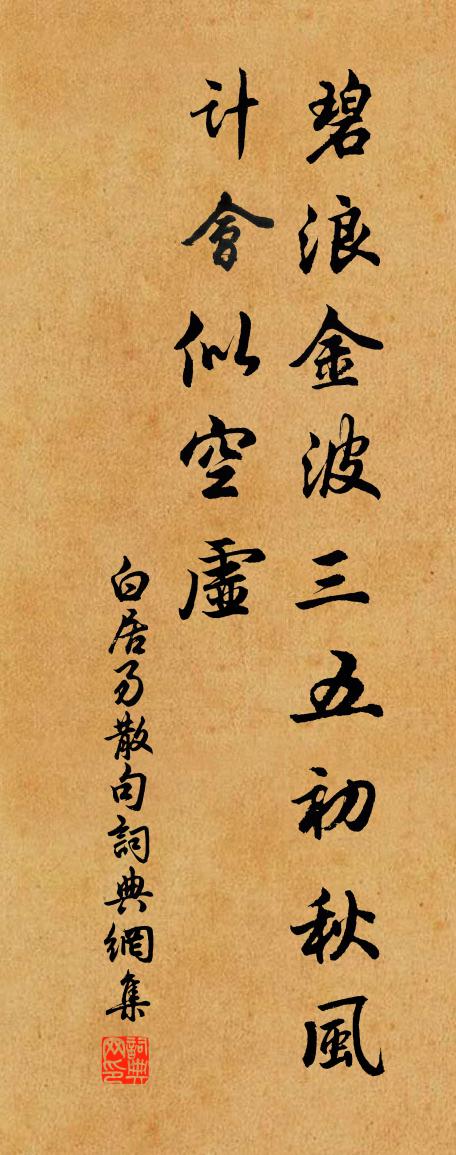 碧浪金波三五初秋風
計會似空虛
白居易散句詞典網集
詞典網印